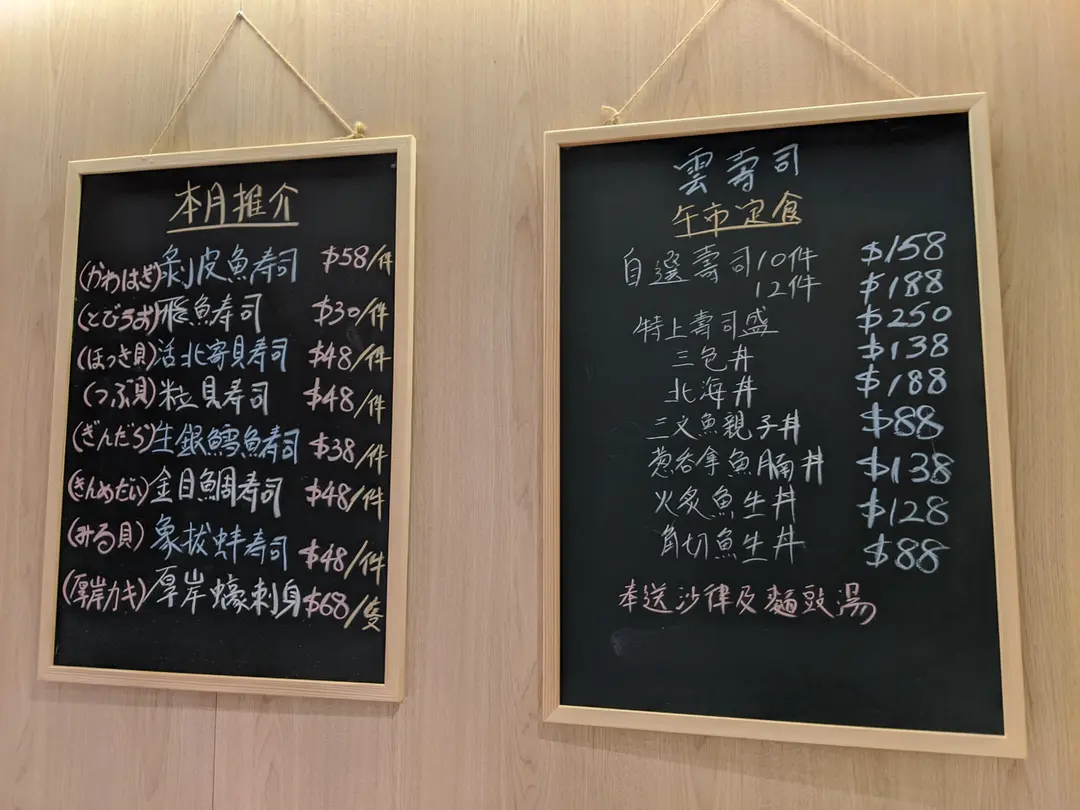 本月推介
(かわはぎ)剝皮魚寿司 $58/件
(とびうお)飛魚寿司 $30/件
(ほっき貝)活北寄貝寿司 $48/件
(つぶ貝)粒貝寿司 $48/件
(ぎんだら)生銀鱈魚寿司 $38/件
(きんめだい)金目鯛寿司 $48/件
(みる貝)象拔蚌寿司 $48/件
(厚岸カキ)厚岸蠔刺身 $68/隻
雲壽司
午市定食
自選壽司10件 $158
12件 $188
特上壽司盛 $250
三色丼 $138
北海丼 $188
三文魚親子丼 $88
葱吞拿魚腩丼 $138
火炙魚生丼 $128
角切魚生丼 $88
奉送沙律及麵豉湯